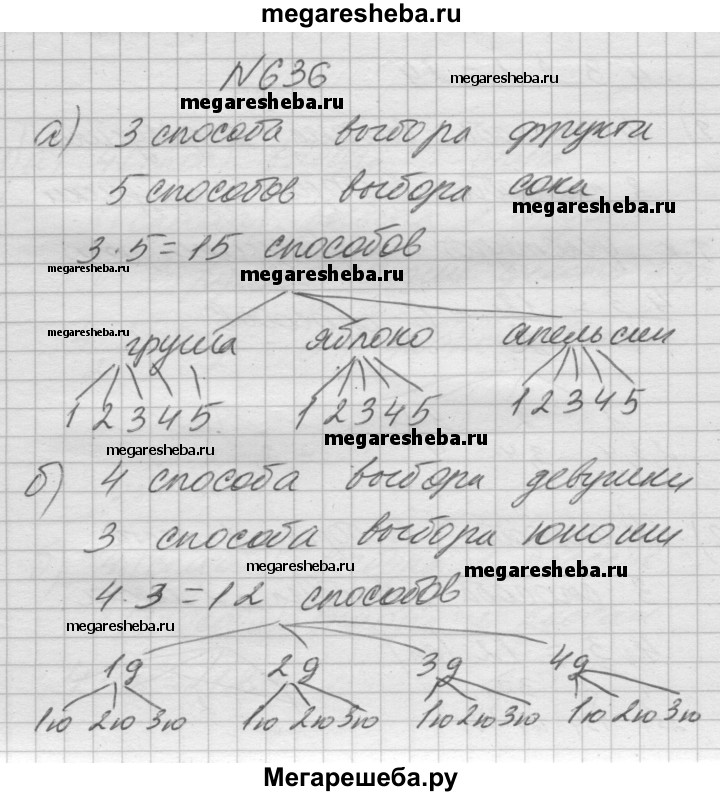 megaresheba.ru
N636
megaresheba.ru
megaresheba.ru
а) 3 способа выбора фрукта
5 способов выбора сока
megaresheba.ru
3·5=15 способов
megaresheba.ru
megaresheba.ru
megaresheba.ru
груша яблоко апельсин
1 2 3 4 5 1 2 3 4 5 1 2 3 4 5
megaresheba.ru
megaresheba.ru
б) 4 способа выбора девушки
3 способа выбора юноши
megaresheba.ru
4·3=12 способов
megaresheba.ru
1д 2д 3д 4д
1ю 2ю 3ю 1ю 2ю 3ю 1ю 2ю 3ю 1ю 2ю 3ю
Мегарешеба.ру